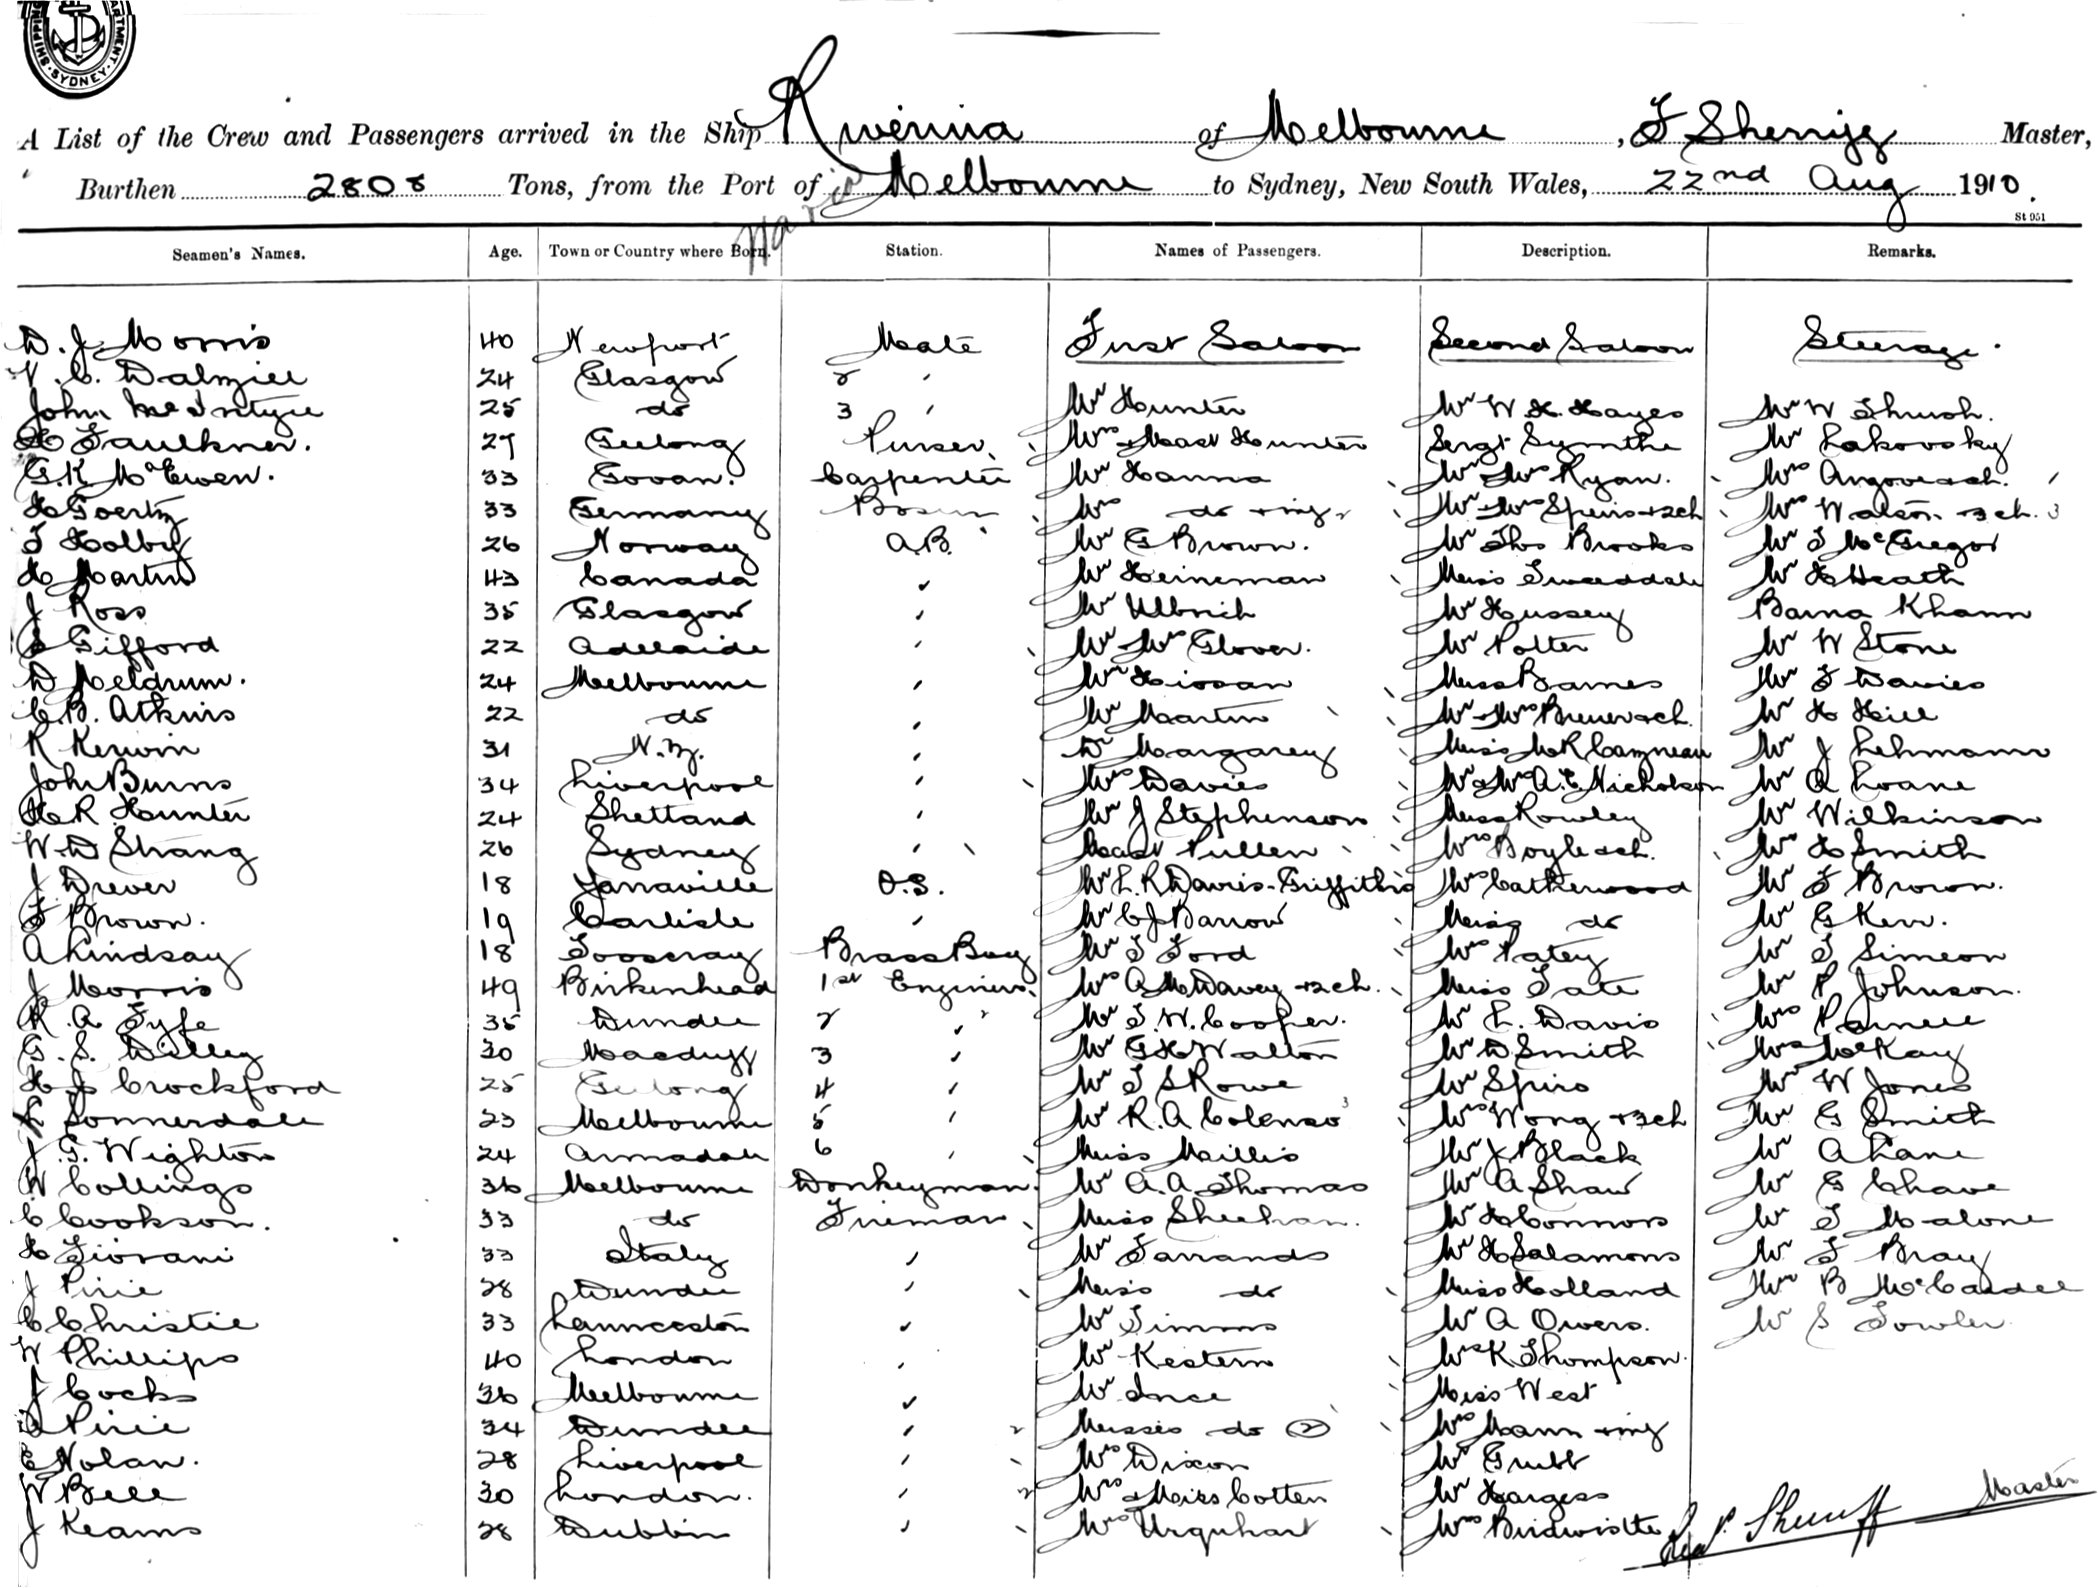 SHIPPING DEPARTMENT · SYDNEY ·
A List of the Crew and Passengers arrived in the Ship Riverina of Melbourne, Master,
Burthen 2808 Tons, from the Port of Melbourne to Sydney, New South Wales, 22nd Aug 1910.
St 951
Seamen's Names. Age. Town or Country where Born. Station. Names of Passengers. Description. Remarks.
D. J. Morris 40 Newport Mate First Saloon Second Saloon Steerage.
C. Dalziell 24 Glasgow 2 '
John McIntyre 25 do 3 ' Mr Hunter Mr W H Hayes Mr W Thrush.
H Faulkner. 29 Geelong Purser Mrs + Mast Hunter Sergt Symthe Mr Lakovsky
G. K McEwen. 33 Govan. Carpenter Mr Hanna Mr + Mrs Ryan. Mrs Angove + ch.
H Goertz 33 Germany Bosun Mrs do + inf Mr + Mrs Spiro + 2ch Mrs Watson + 3 ch. 3
T Holby 26 Norway A.B. Mr G Brown. Mr Thos Brooks Mr J McGregor
H Martin 43 Canada ' Mr Heineman Miss Tweeddale Mr H Heath
J Ross 35 Glasgow ' Mr Ulbrich Mr Hussey Barna Khann
Gifford 22 Adelaide ' Mr + Mrs Glover. Mr Potter Mr W Stone
D Meldrum. 24 Melbourne ' Mr Hissan Miss Barnes Mr J Davies
C. B. Atkins 22 do ' Mr Martin Mr + Mrs Brewer + ch. Mr H Hill
R Kerwin 31 N. Z. ' Dr Margarey Miss McR Cazneau Mr J Lehmann
John Burns 34 Liverpool ' Mrs Davies Mr & Mrs A. E. Nicholson Mr A Loane
H R Hunter 24 Shetland ' Mr J Stephenson Miss Rowley Mr Wilkinson
W. D Strang 26 Sydney ' Mast Pullen Mrs Boyle + ch. Mr H Smith
J Drever 18 Yarraville O.S. Mr L. R Davies-Griffiths Mrs Catherwood Mr J Brown.
F Brown. 19 Carlisle ' Mr C J Barrow Miss do Mr G Kerr.
A Lindsay 18 Footscray Brass Boy Mr J Ford Mrs Patey Mr J Simeon
J Morris 49 Birkenhead 1st Engineer Mrs A McDavey + 2ch. Miss Tate Mr P Johnson.
R. A Fyfe 35 Dundee 2 ' Mr J. W. Cooper. Mr L. Davis Mrs Parnell
G. S. Dilley 30 Macduff 3 ' Mr G H Walton Mr D Smith Mrs McKay
H J Crockford 25 Geelong 4 ' Mr J S Rowe Mr Spiro Mr W Jones
Sonnerdale 23 Melbourne 5 ' Mr R. A Colenso Mrs Wong + 3ch Mr G Smith
J. G. Wighton 24 Armadale 6 ' Miss Maillis Mr J Black Mr A Lane
W Collings 36 Melbourne Donkeyman. Mr A. A. Thomas Mr A Shaw Mr G Chave
C Cookson. 33 do Fireman Miss Sheehan. Mr H Connors Mr J Malone
H Fiorani 33 Italy ' Mr Farrands Mr H Salamons Mr J Bray
J Pirie 28 Dundee ' Miss do Miss Holland Mr B McCardel
C Christie 33 Launceston ' Mr Timms Mr A Owers. Mr S Fowler
W Phillips 40 London ' Mr Kestern Mrs K Thompson.
J Cocks 36 Melbourne ' Mr Ince Miss West
Pirie 34 Dundee ' Misses do ② Mrs Mann + inf
E Nolan. 28 Liverpool ' Mrs Dixon Mr Grubb
W Bell 30 London. ' Mrs + Miss Cotten Mr Hargess Master
J Keams 28 Dublin ' Mrs Urquhart Mrs Birdwistle